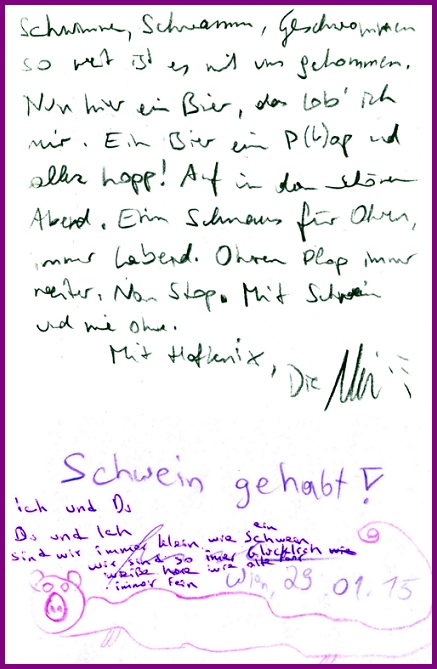 Schwimme, Schwamm, Geschwommen
so weit ist es mit uns gekommen.
Nun hier ein Bier, das lob' ich
mir. Ein Bier ein P(l)op und
alles hopp! Auf in den schönen
Abend. Ein Schmaus für Ohren,
immer labend. Ohren Plop immer
weiter. Non Stop. Mit Schwein
und nie ohne.
Mit Hofknix, Die
Schwein gehabt!
ich und Du
Du und Ich ein
sind wir immer klein wie Schwein
wir sind so immer Glücklich wie
weiße wie alte
immer fein
Wien, 29.01.15